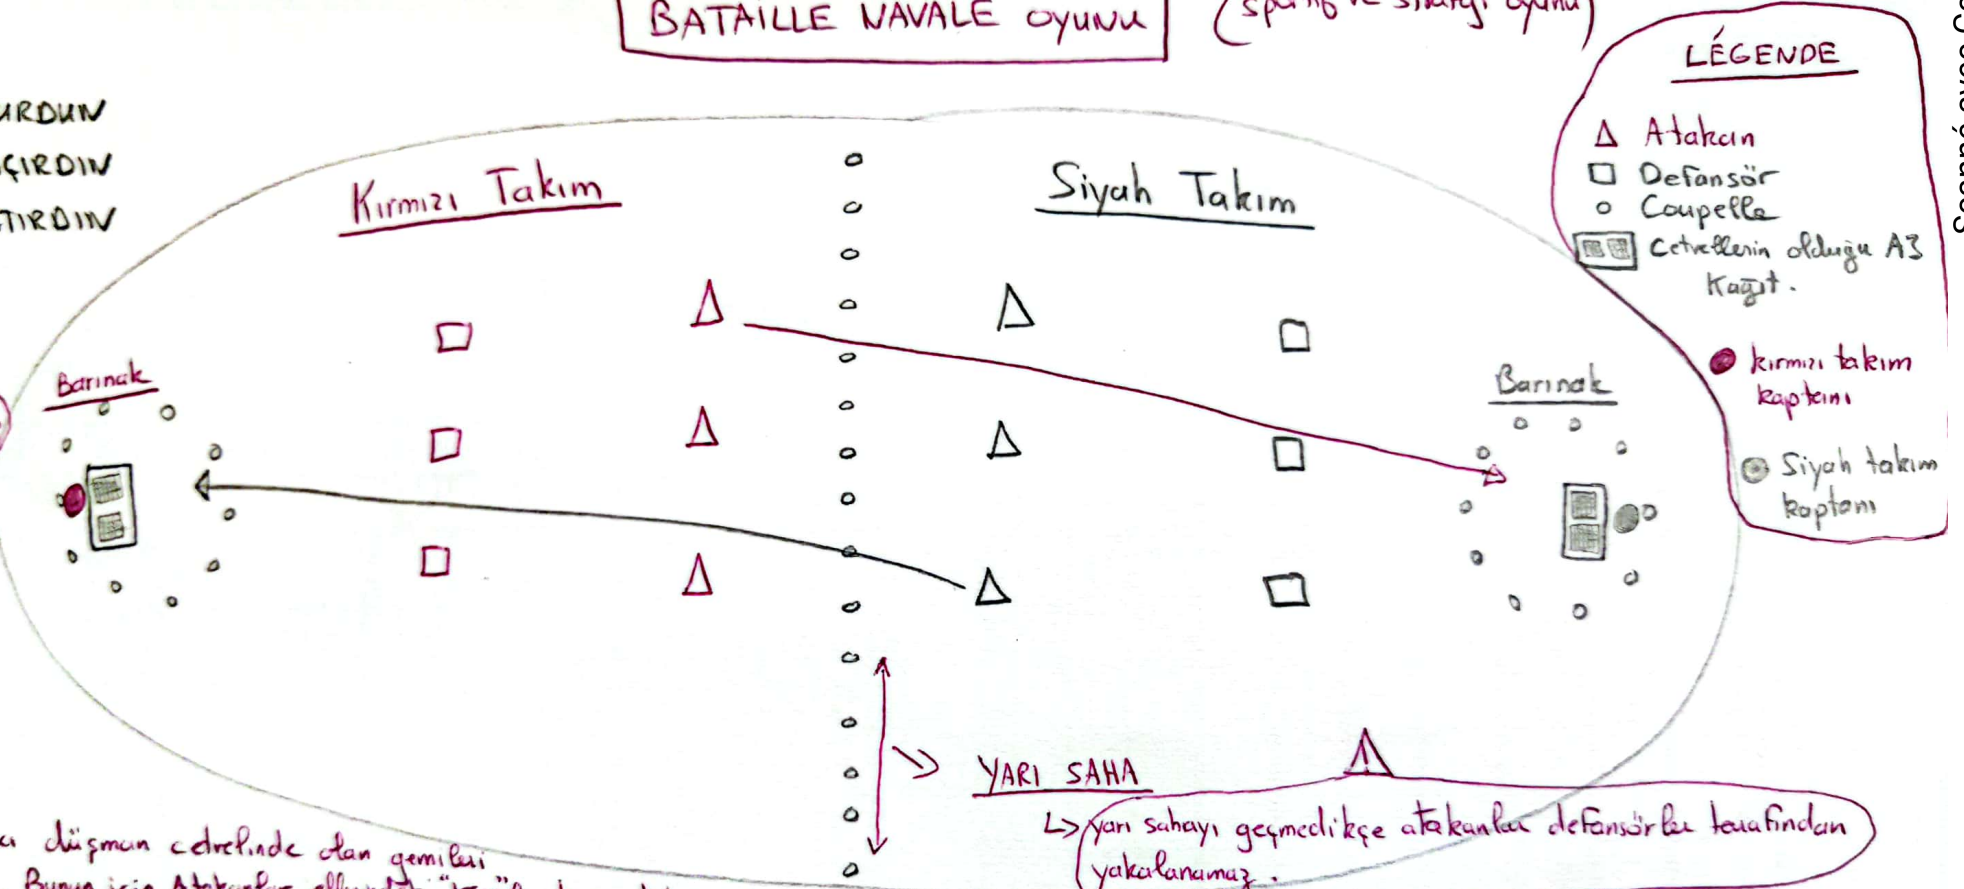 BATAILLE NAVALE oyunu
oyunu)
LÉGENDE
Atakan
Defansör
Coupelle
Cetvellerin olduğu A3
Kağıt.
kırmızı takım
kaptanı
Siyah takım
kaptanı
URDUN
ÇIRDIN
TIRDIN
Kırmızı Takım
Siyah Takım
Barınak
Barınak
YARI SAHA
yarı sahayı geçmedikçe atakanlar defansörler tarafından
yakalanamaz.
düşman cetvelinde olan gemileri
Bunun için Atakanlar
Scanné avec